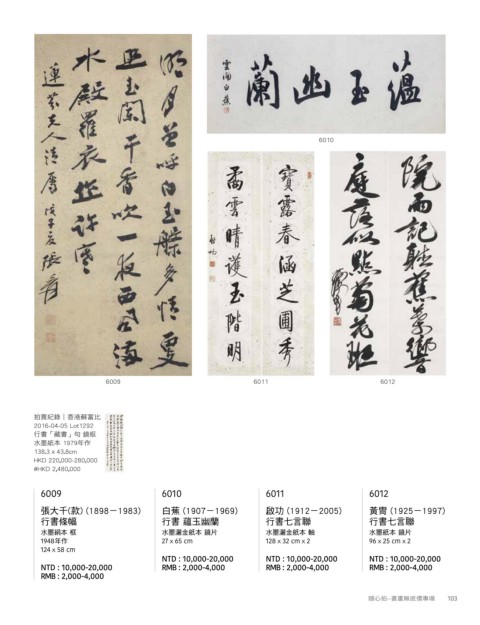 蘊玉幽蘭
雲間白蕉
6010
明月無呼白玉艖多情更
照玉闌干香吹一夜西風滿
水殿羅衣從許寒
蓮芬夫人清屬 戊子夏 張爰
6009
寶露春涵芝圃秀
矞雲晴護玉階明
啟功
6011
院雨記聽蕉葉響
庭霜似點菊花班
6012
拍賣紀錄｜香港蘇富比
2016-04-05 Lot1292
行書「藏書」句 鏡框
水墨紙本 1979年作
138.3 x 43.8cm
HKD 220,000-280,000
#HKD 2,480,000
6009
張大千(款)（1898－1983）
行書條幅
水墨絹本 框
1948年作
124 x 58 cm
NTD : 10,000-20,000
RMB : 2,000-4,000
6010
白蕉（1907－1969）
行書 蘊玉幽蘭
水墨灑金紙本 鏡片
27 x 65 cm
NTD : 10,000-20,000
RMB : 2,000-4,000
6011
啟功（1912－2005）
行書七言聯
水墨灑金紙本 軸
128 x 32 cm x 2
NTD : 10,000-20,000
RMB : 2,000-4,000
6012
黃冑（1925－1997）
行書七言聯
水墨紙本 鏡片
96 x 25 cm x 2
NTD : 10,000-20,000
RMB : 2,000-4,000
隨心拍–書畫無底價專場
103